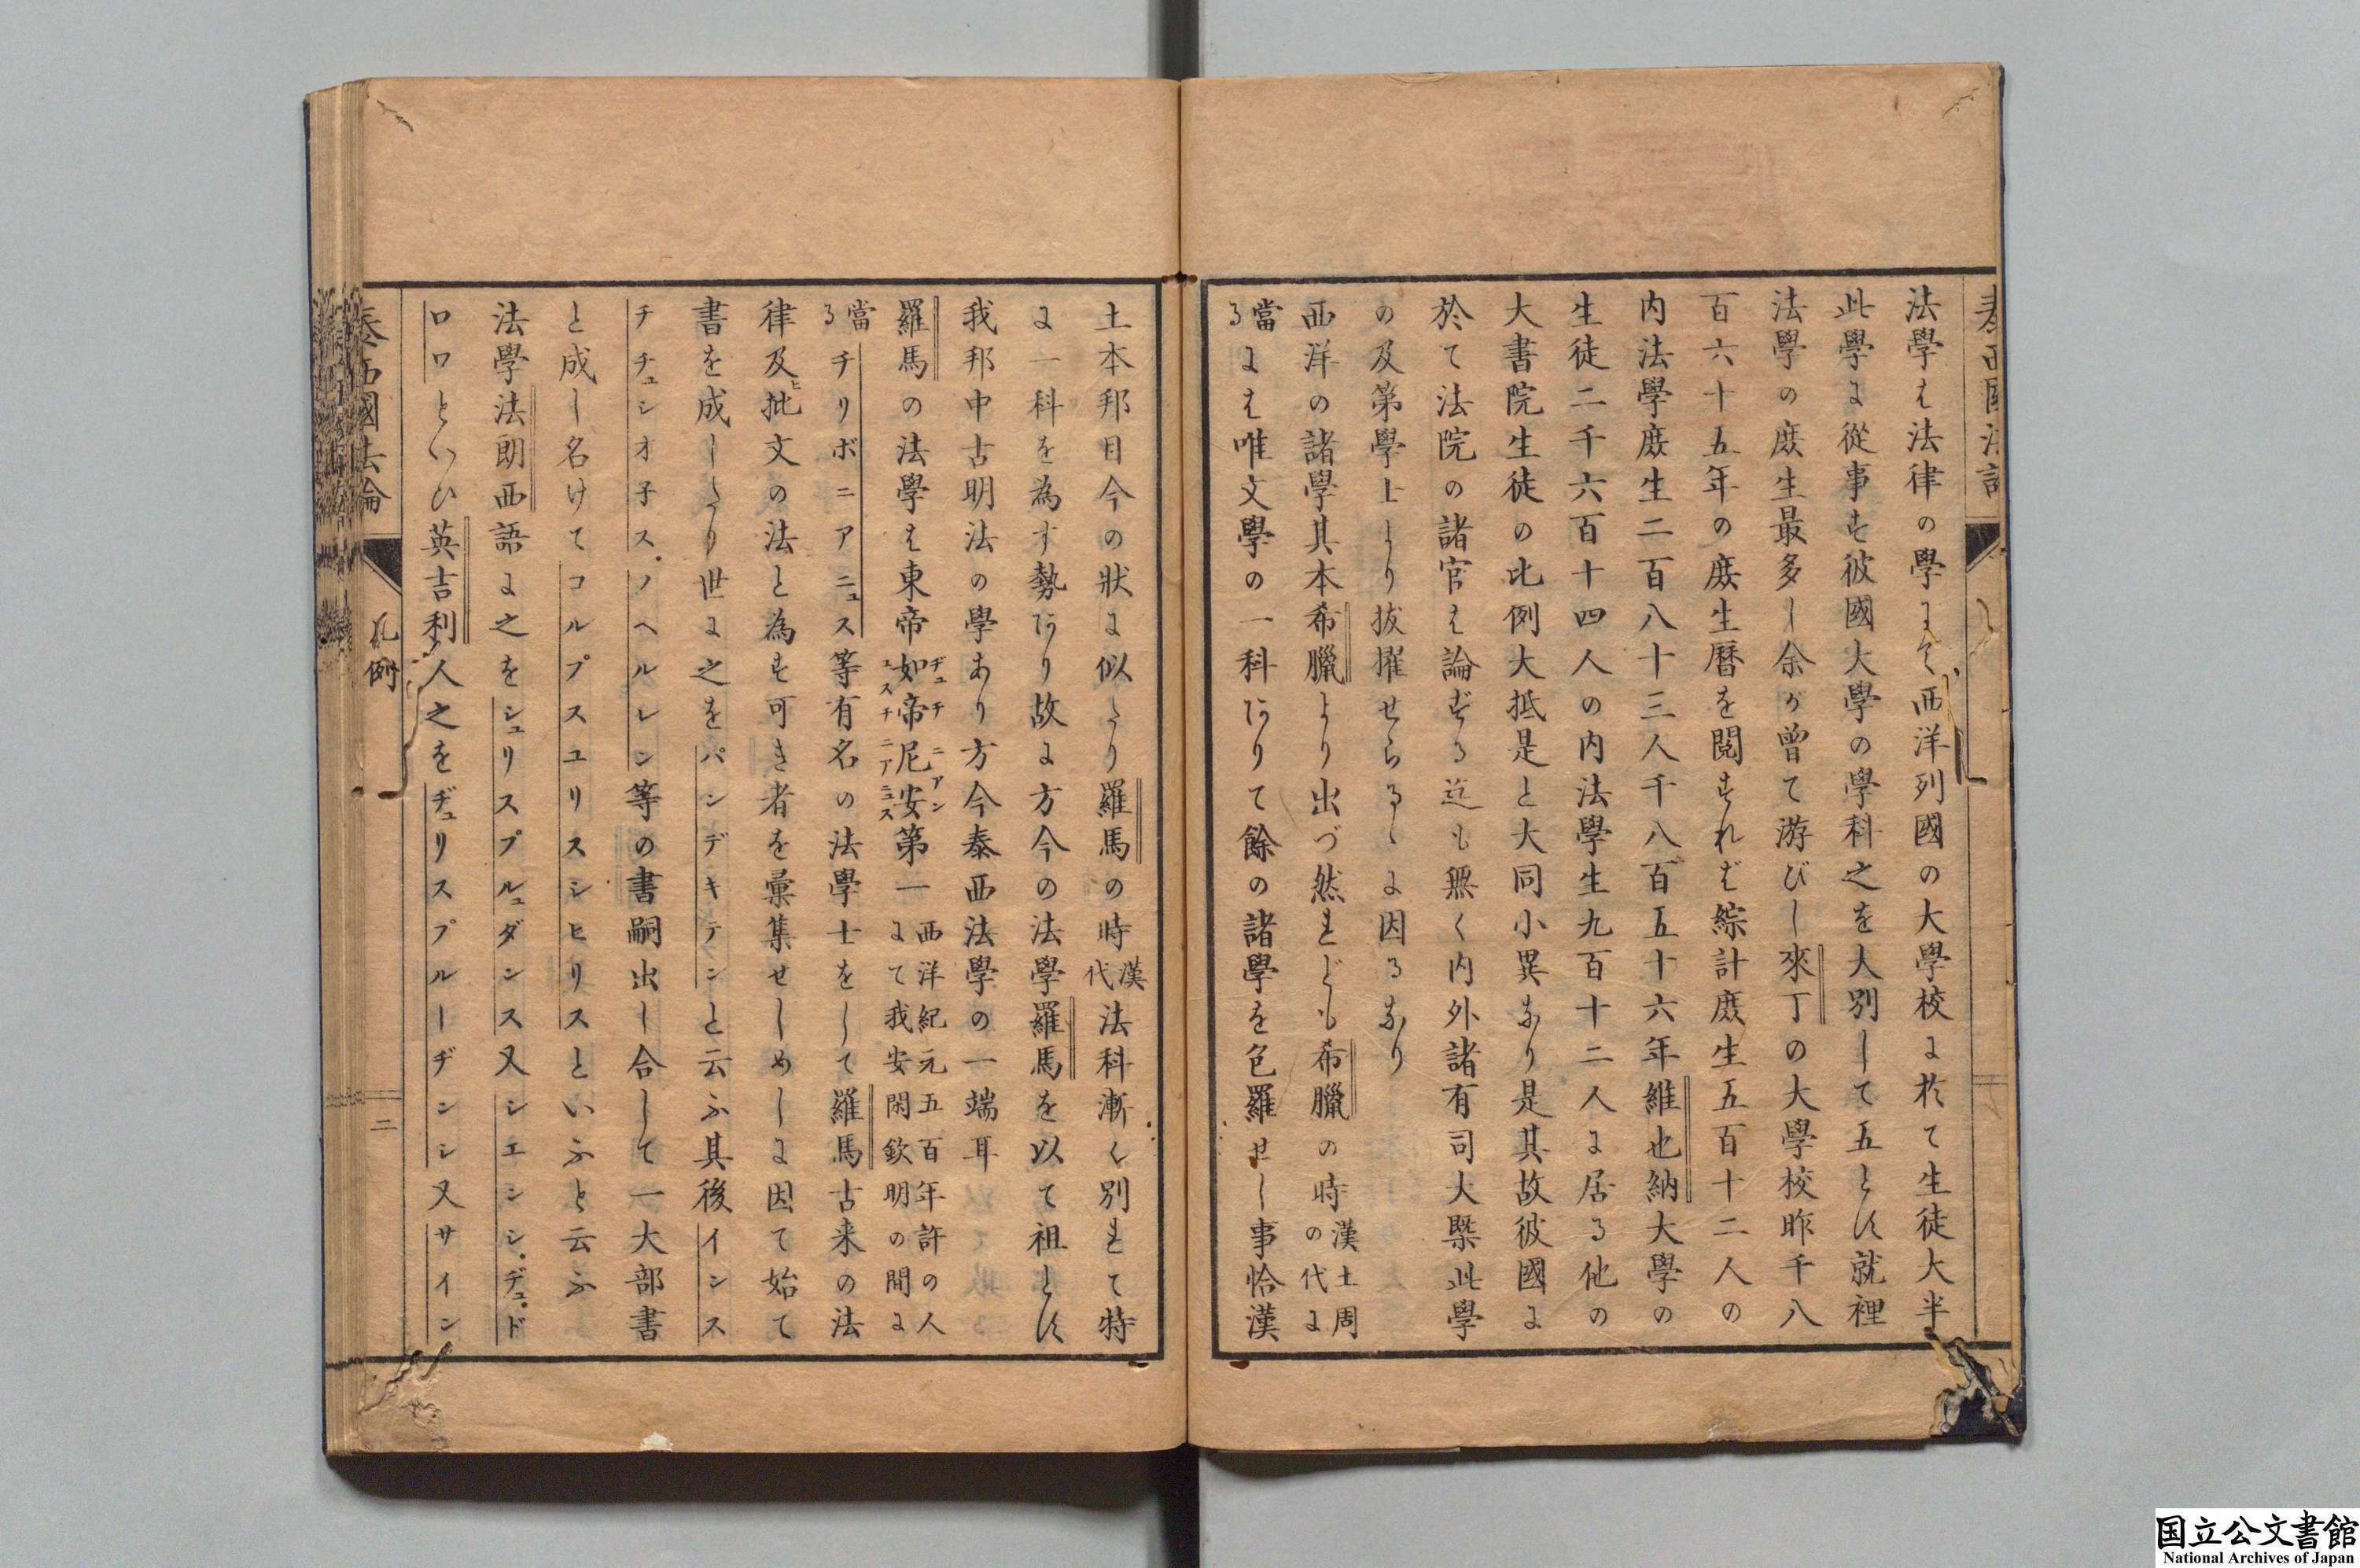 泰西國法論
法學は法律の學にて西洋列國の大學校に於て生徒大半
此學に從事す彼國大學の學科之を大別して五とす就裡
法學の庻生最多し余が曾て游びし來丁の大學校昨千八
百六十五年の庻生曆を閲すれば綜計庻生五百十二人の
内法學庻生二百八十三人千八百五十六年維也納大學の
生徒二千六百十四人の内法學生九百十二人に居る他の
大書院生徒の比例大抵是と大同小異なり是其故彼國に
於て法院の諸官は論ずる迄も無く内外諸有司大槩此學
の及第學士より拔擢せらるゝに因るなり
西洋の諸學其本希臘より出づ然れども希臘の時漢土周の代に
當る
には唯文學の一科ありて餘の諸學を包羅せし事恰漢
土本邦目今の狀に似たり羅馬の時漢代法科漸く別れて特
に一科を為す勢あり故に方今の法學羅馬を以て祖とす
我邦中古明法の學あり方今泰西法學の一端耳
羅馬の法學は東帝如帝尼安第一西洋紀元五百年許の人にて我安閑欽明の間に
ヂュチニアン
ユスチニアニュス
當る
チリボニアニュス等有名の法學士をして羅馬古来の法
律及批文の法と為す可き者を彙集せしめしに因て始て
ヒ
書を成したり世に之をパンデキテンと云ふ其後インス
チチュシオ子ス。ノヘルレン等の書嗣出し合して一大部書
と成し名けてコルプスユリスシヒリスといふと云ふ
法學法朗西語に之をシュリスプルュダンス又シエンシ。ヂュ。ド
ロワといひ英吉利人之をヂュリスプルーヂンシ又サイン
泰西國法論
凡例
二
国立公文書館
National Archives of Japan